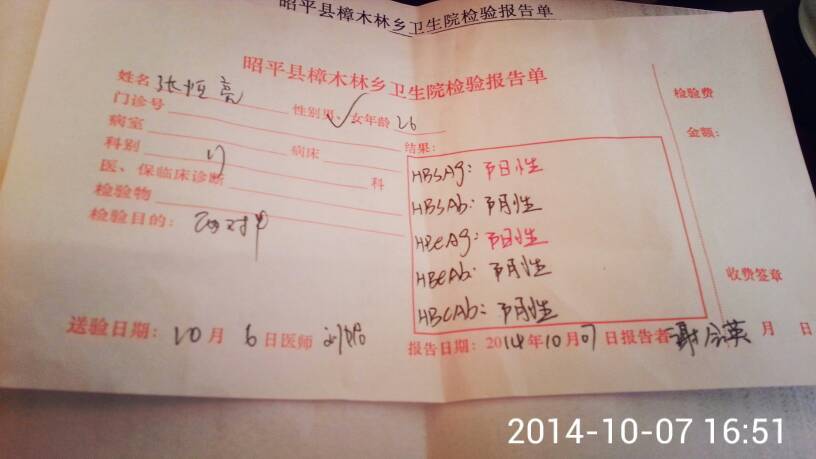 昭平县樟木林乡卫生院检验报告单
昭平县樟木林乡卫生院检验报告单
姓名 张恒亮 性别男、女年龄 26
门诊号
病室 病床
科别 门 科
医、保临床诊断
检验物
检验目的:
结果:
HBsAg: 阳性
HBsAb: 阴性
HBeAg: 阳性
HBeAb: 阴性
HBcAb: 阴性
检验费
金额:
收费签章
送验日期: 10月 6日医师
报告日期: 2014年10月07日报告者 谢 英 月 日
2014-10-07 16:51